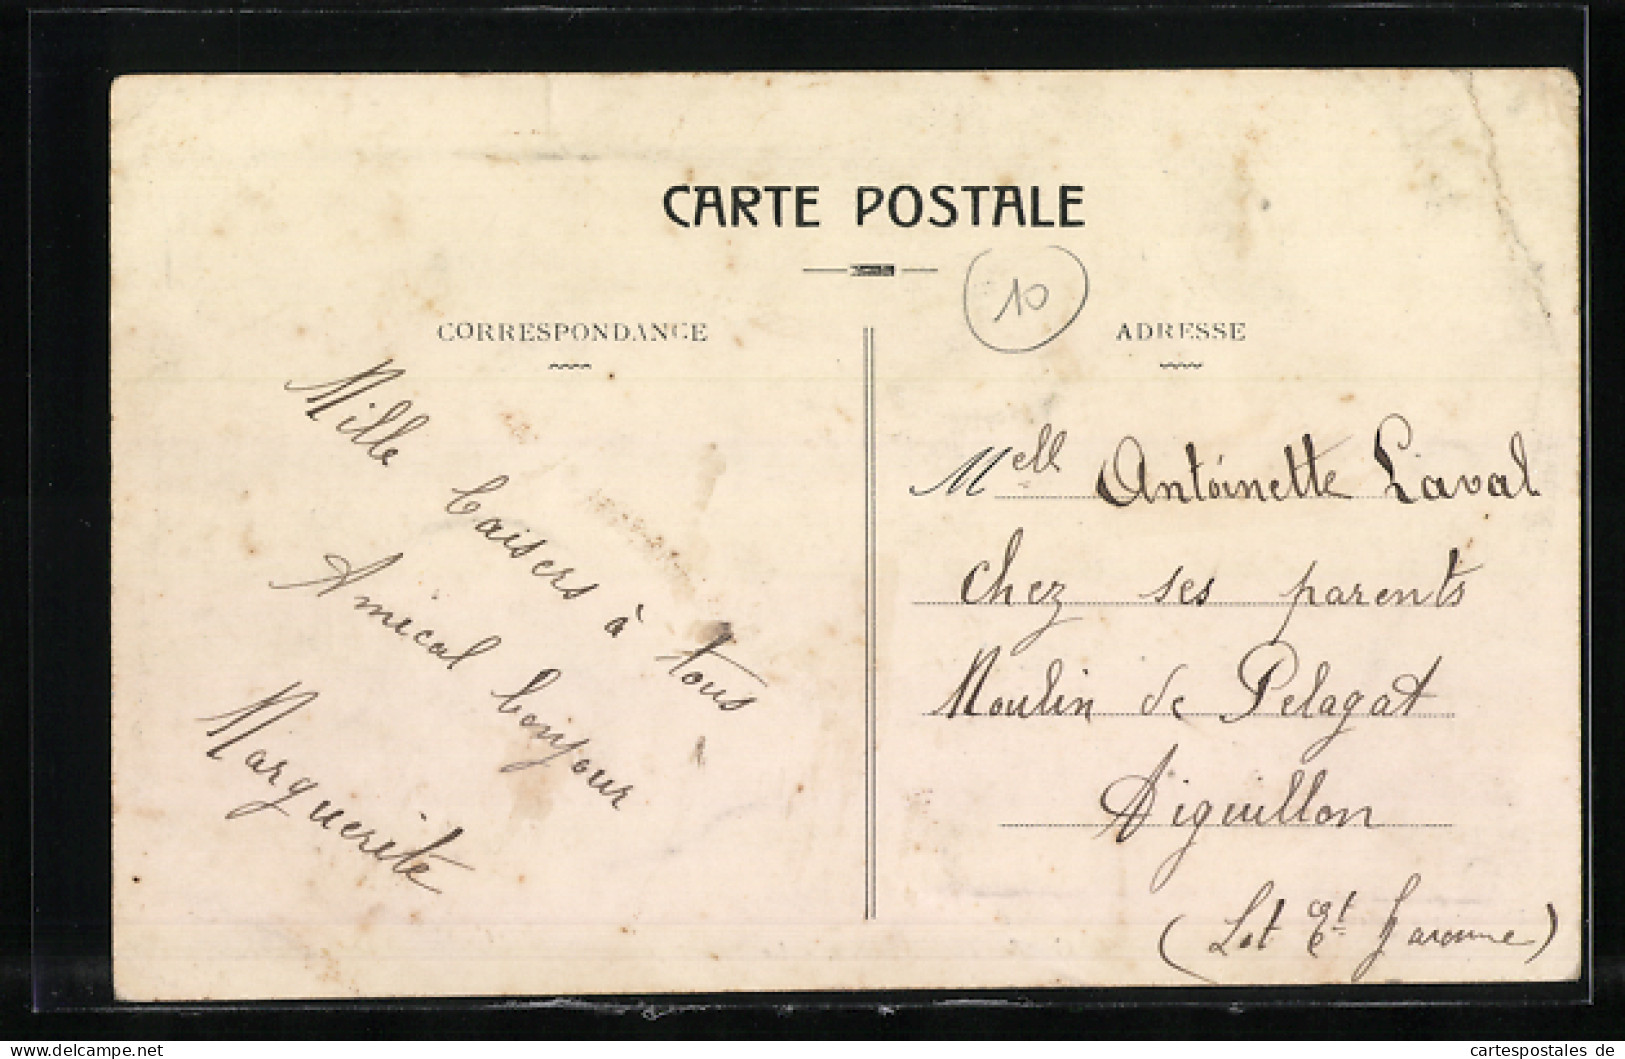 CARTE POSTALE
10
CORRESPONDANCE
Mille baisers à tous
Amical bonjour
Marguerite
ADRESSE
Mell Antoinette Laval
chez ses parents
Moulin de Pelagat
Aiguillon
(Lot Et Garonne)
oldthing.de/Bartko-Reher
cartespostales de